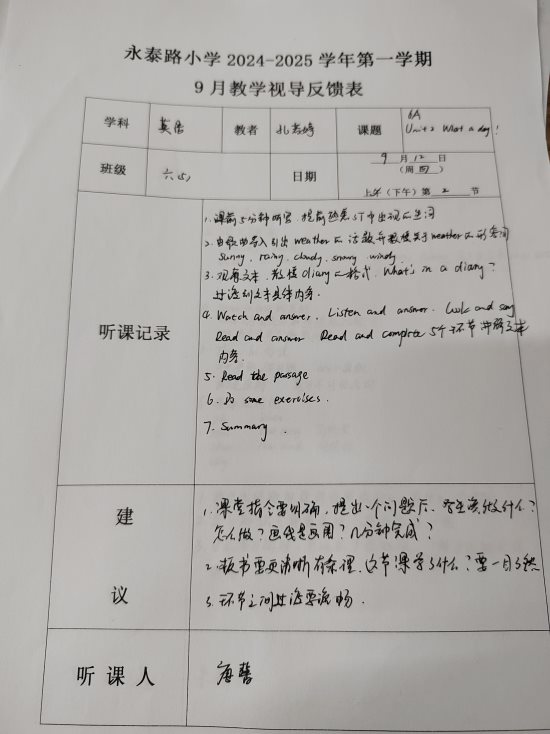 永泰路小学 2024-2025 学年第一学期
9 月教学视导反馈表
学科 英语 教者 课题 6A Unit 2 What a day!
班级 六(5) 日期 9 月 12 日
(周四)
上午(下午)第 2 节
听课记录
1. 课前5分钟听写,提前熟悉ST中出现的生词
2. 由歌曲导入引出 weather的话题并教授关于weather的形容词
sunny, rainy, cloudy, snowy, windy.
3. 观看文本,教授diary的格式, What's in a diary?
过渡到文本具体内容.
4. Watch and answer. Listen and answer. Look and say
Read and answer Read and complete 5个环节理解文本
内容.
5. Read the passage
6. Do some exercises.
7. Summary.
建议
1. 课堂指令要明确,提出一个问题后,学生该做什么?
怎么做?画线是画圈?几分钟完成?
2. 板书要更清晰有条理,这节课学了什么?要一目了然
3. 环节之间过渡要流畅.
听课人